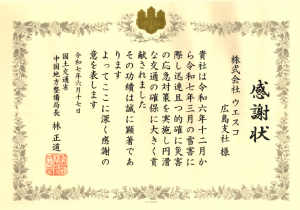 感謝状
株式会社 ウエスコ
広島支社 様
貴社は令和六年十二月か
ら令和七年三月の雪害に
際し迅速且つ的確に災害
の応急対策を実施し円滑
な交通の確保に大きく貢
献されました
その功績は誠に顕著であ
ります
よってここに深く感謝の
意を表します
令和七年六月十七日
国土交通省
中国地方整備局長 林 正道